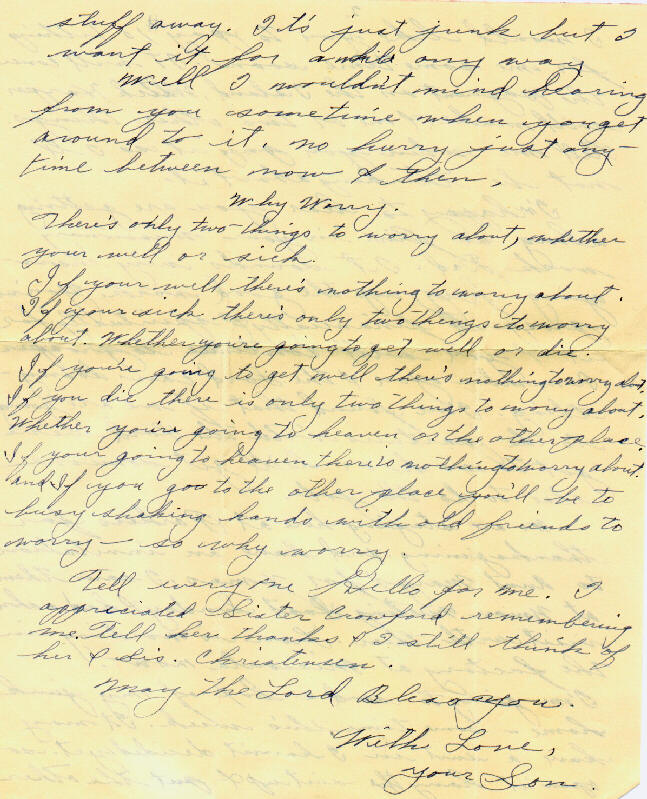 stuff away. It's just junk but I
want it for awhile any way
Well I wouldn't mind hearing
from you sometime when you get
around to it, no hurry just any-
time between now & then,
Why Worry.
There's only two things to worry about, whether
your well or sick.
If your well there's nothing to worry about.
If your sick there's only two things to worry
about. Whether you're going to get well or die.
If you're going to get well there's nothing to worry about.
If you die there is only two things to worry about.
Whether you're going to heaven or the other place.
If your going to heaven there's nothing to worry about.
and If you goo to the other place you'll be to
busy shaking hands with old friends to
worry — so why worry.
Tell every one Hello for me. I
appriciated Sister Crawford remembering
me. Tell her thanks & I still think of
her & Sis. Christensen.
May The Lord Bless you.
With Love,
your Son.